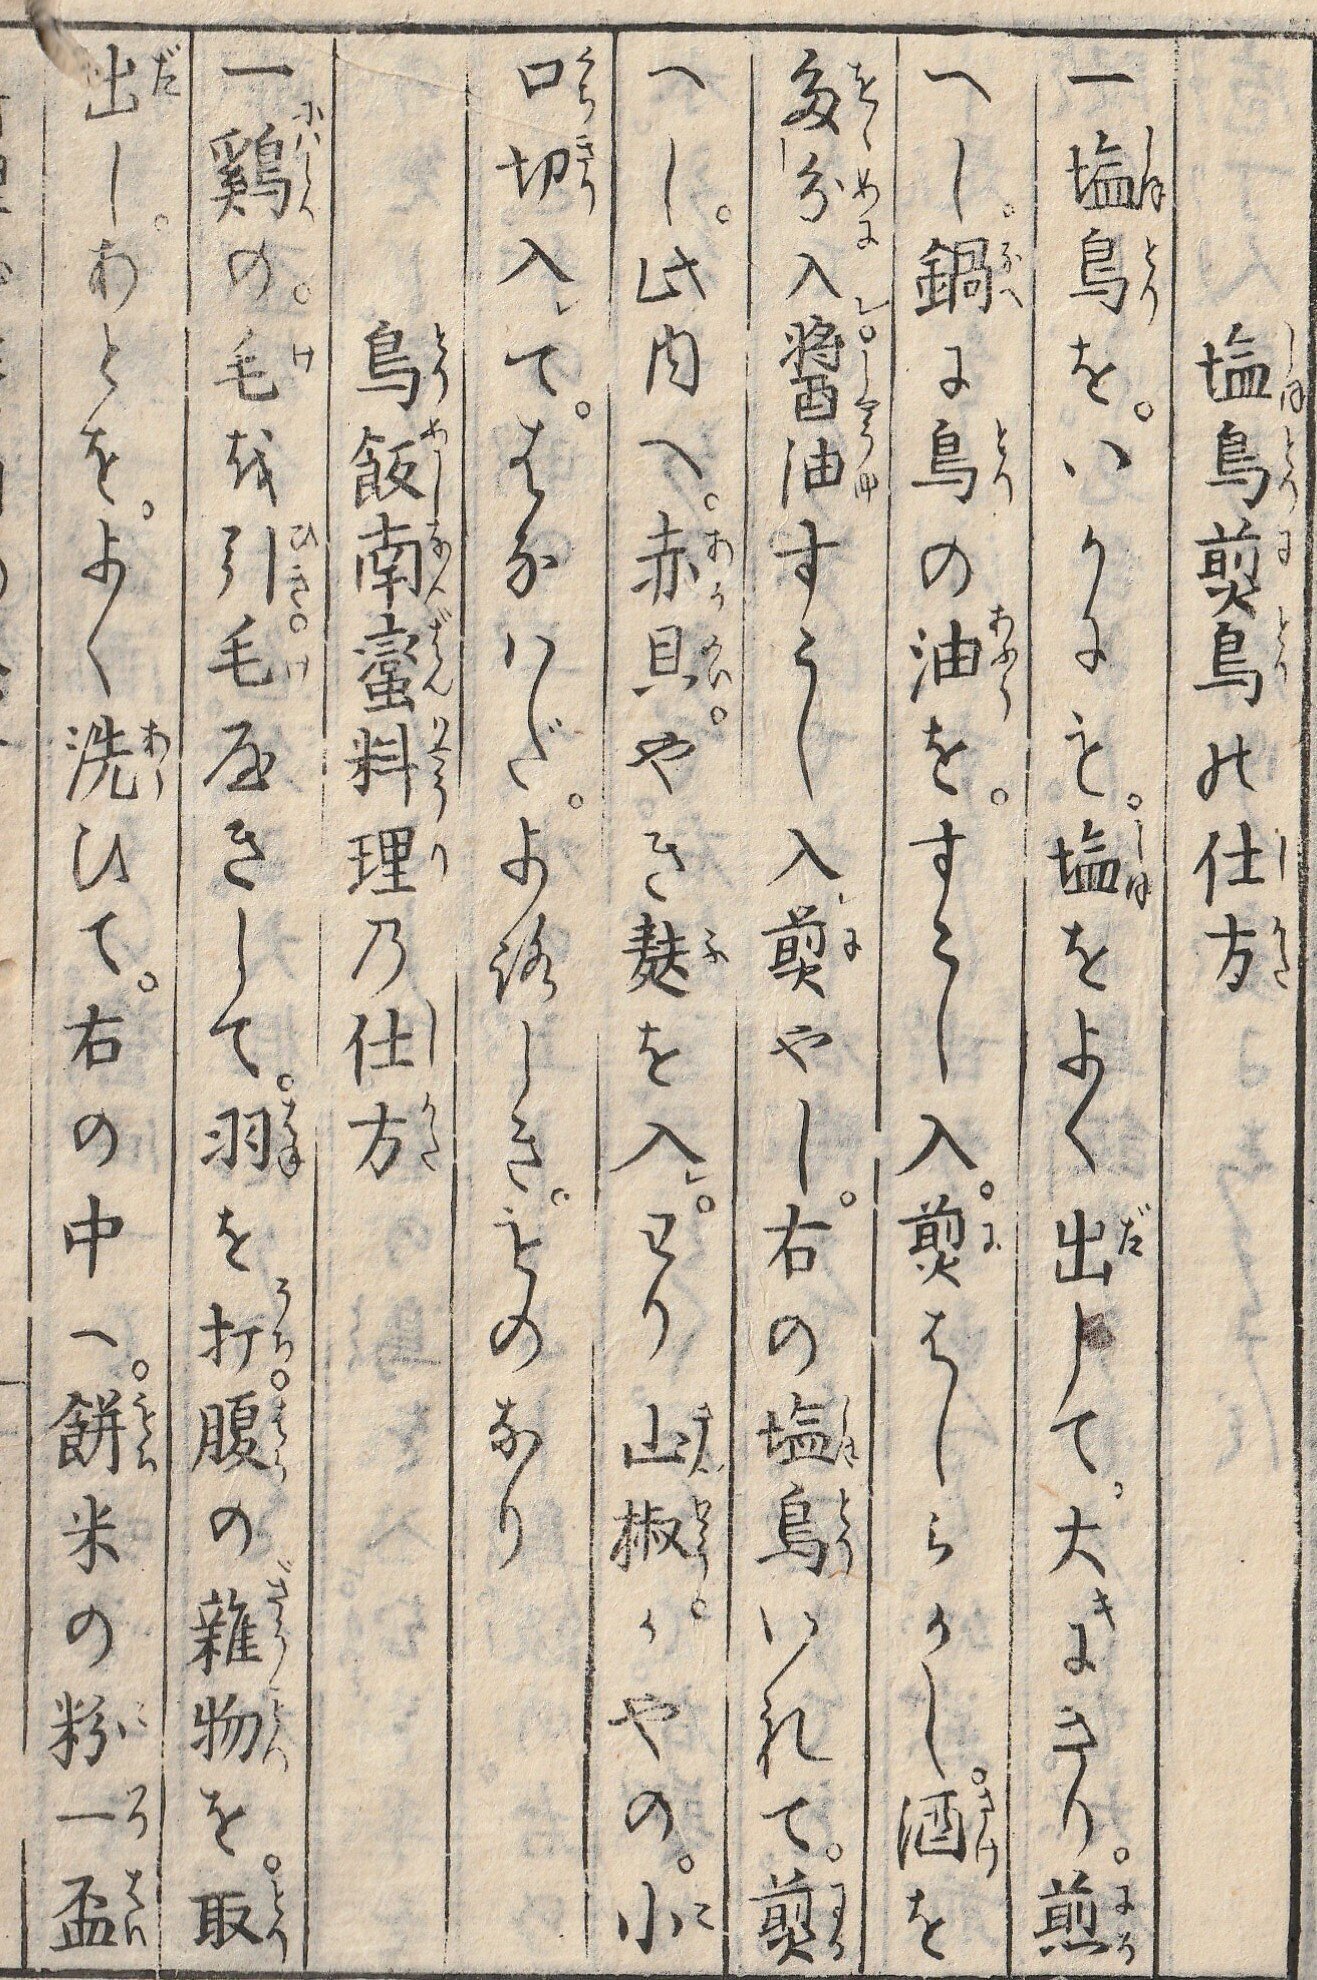 塩鳥煎鳥の仕方
一塩鳥を。いかにも。塩をよく出して。大きにきり。煎
へし。鍋に鳥の油を。すこし入。煎はしらかし。酒を
多分入。醤油すこし入煎やし。右の塩鳥いれて。煎
へし。此内へ。赤貝。やき麸を入。わり山椒。かやの。小
口切入て。はなはだ。よろしき。ものなり
鳥飯南蛮料理乃仕方
一鶏の。毛を引。毛やきして。羽を打。腹の雑物を。取
出し。あとを。よく洗ひて。右の中へ。餅米の粉一盃